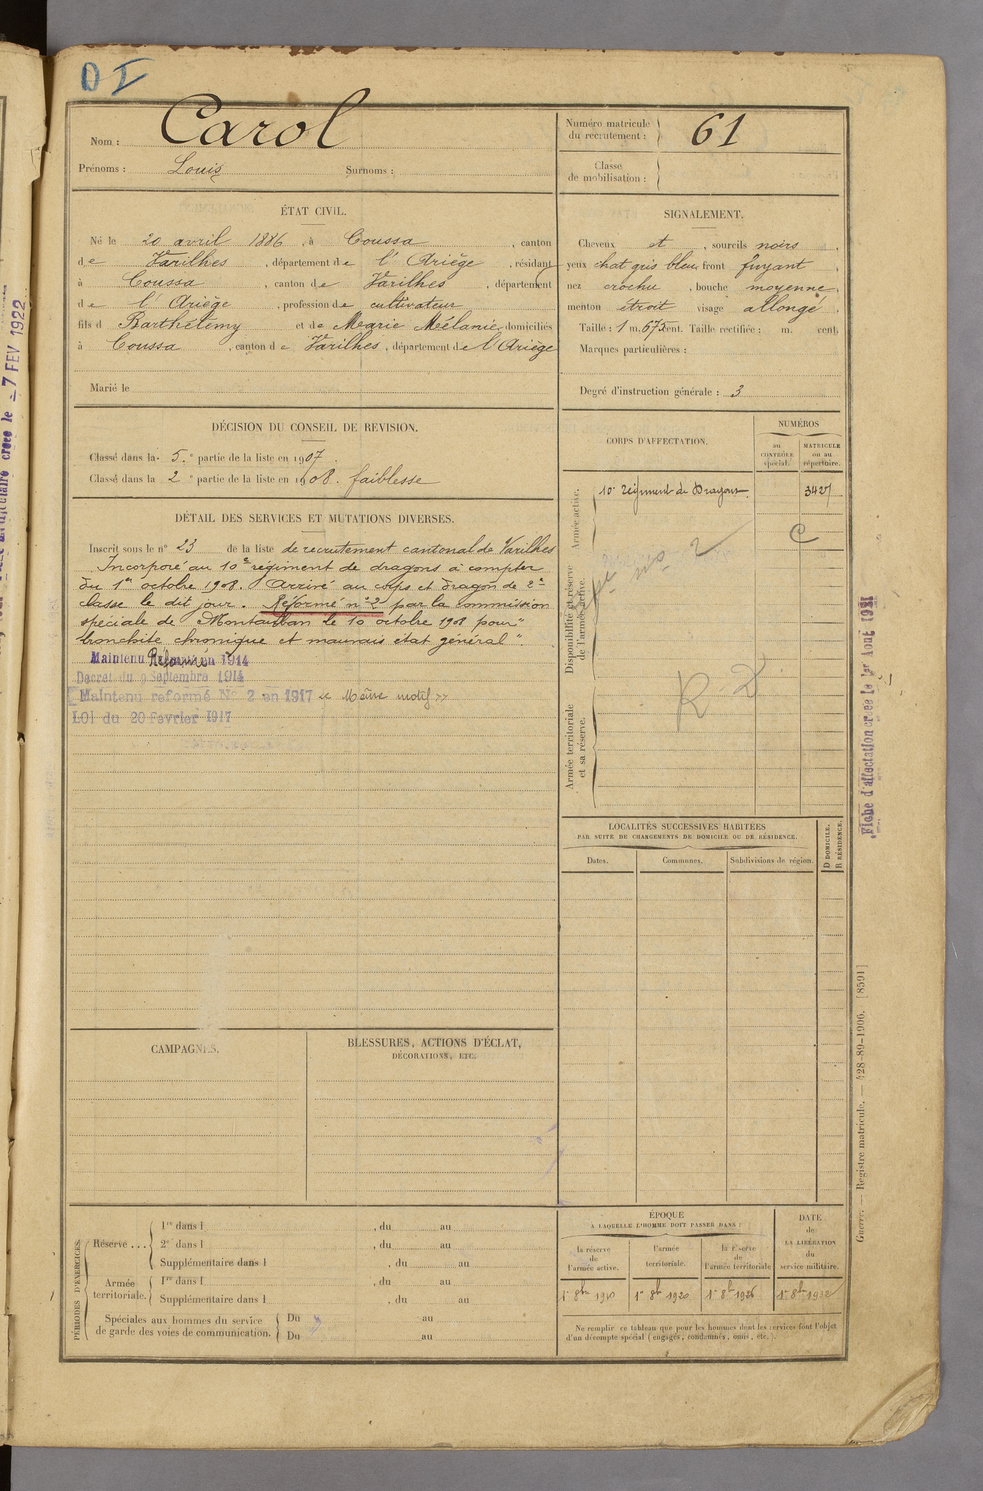 D I
Nom : Carol
Prénoms : Louis Surnoms :
Numéro matricule
du recrutement : 61
Classe
de mobilisation :
ÉTAT CIVIL.
Né le 20 avril 1886, à Coussa, canton
de Varilhes, département de l'Ariège, résidant
à Coussa, canton de Varilhes, département
de l'Ariège, profession de cultivateur
fils d Barthélemy et de Marie Mélanie, domiciliés
à Coussa, canton de Varilhes, département de l'Ariège
Marié le
SIGNALEMENT.
Cheveux et, sourcils noirs,
yeux chat gris bleu front fuyant,
nez crochu, bouche moyenne,
menton étroit visage allongé.
Taille : 1 m. 673 cent. Taille rectifiée : m. cent.
Marques particulières :
Degré d'instruction générale : 3
DÉCISION DU CONSEIL DE REVISION.
Classé dans la 5e partie de la liste en 1907.
Classé dans la 2e partie de la liste en 1908. faiblesse
DÉTAIL DES SERVICES ET MUTATIONS DIVERSES.
Inscrit sous le n° 23 de la liste de recrutement cantonal de Varilhes
Incorporé au 10e régiment de dragons à compter
du 1er octobre 1908. Arrivé au corps et dragon de 2e
classe le dit jour. Réformé n° 2 par la Commission
spéciale de Montauban le 10 octobre 1908 pour "
bronchite chronique et mauvais état général "
Maintenu Réformé en 1914
Décret du 9 Septembre 1914
Maintenu reformé No 2 en 1917 « Même motif »
LOI du 20 Fevrier 1917
CORPS D'AFFECTATION.
NUMÉROS
au
CONTRÔLE
spécial.
MATRICULE
ou au
répertoire.
Armée active.
10e régiment de Dragons. 3427
C
Disponibilité et réserve
de l'armée active.
R 2
Armée territoriale
et sa réserve.
LOCALITÉS SUCCESSIVES HABITÉES
PAR SUITE DE CHANGEMENTS DE DOMICILE OU DE RÉSIDENCE.
Dates. Communes. Subdivisions de région.
D DOMICILE.
R RÉSIDENCE.
CAMPAGNES.
BLESSURES, ACTIONS D'ÉCLAT,
DÉCORATIONS, ETC.
PÉRIODES D'EXERCICES.
Réserve ...
1re dans l , du au
2e dans l , du au
Supplémentaire dans l , du au
Armée
territoriale.
1re dans l , du au
Supplémentaire dans l , du au
Spéciales aux hommes du service
de garde des voies de communication.
Du au
Du au
ÉPOQUE
À LAQUELLE L'HOMME DOIT PASSER DANS :
la réserve
de
l'armée active.
l'armée
territoriale.
la réserve
de
l'armée territoriale
DATE
de
LA LIBÉRATION
du
service militaire.
1er 8bre 1910 1er 8bre 1920 1er 8bre 1926 1er 8bre 1932
Ne remplir ce tableau que pour les hommes dont les services font l'objet
d'un décompte spécial (engagés, condamnés, omis, etc.).
Fiche d'affectation créée le 1er Août 1921
Guerre. — Registre matricule. — 428-89-1906. [8591]
créée le -7 FEV 1922